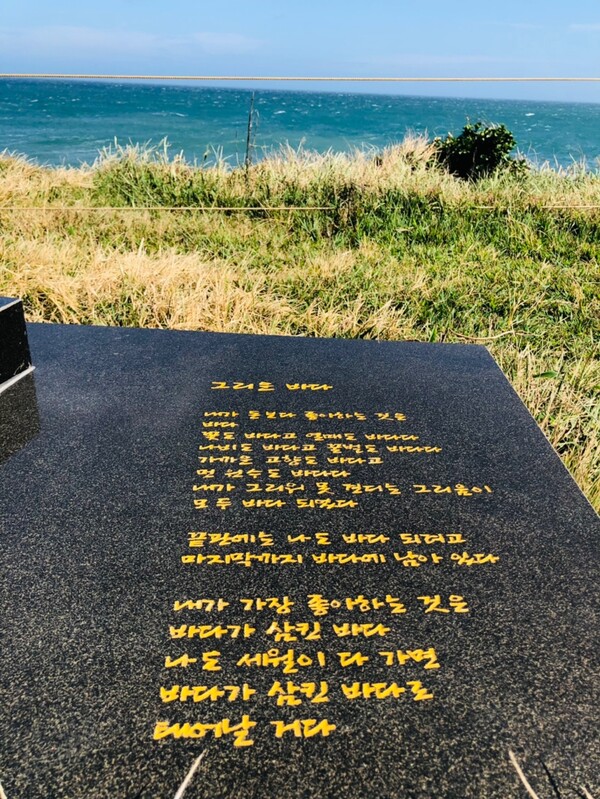 그리는 바다
내가 돈보다 좋아하는 것은
바다
꽃도 바다고 열매도 바다다
나비도 바다고 꿀벌도 바다다
가까운 고향도 바다고
먼 원수도 바다다
내가 그리워 못 견디는 그리움이
모두 바다 되었다
끝판에는 나도 바다 되려고
마지막까지 바다에 남아 있다
내가 가장 좋아하는 것은
바다가 삼킨 바다
나도 세월이 다 가면
바다가 삼킨 바다로
태어날 거다